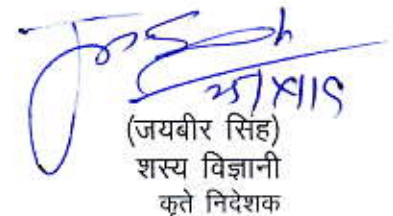 (जयबीर सिंह)
शस्य विज्ञानी
कृते निदेशक